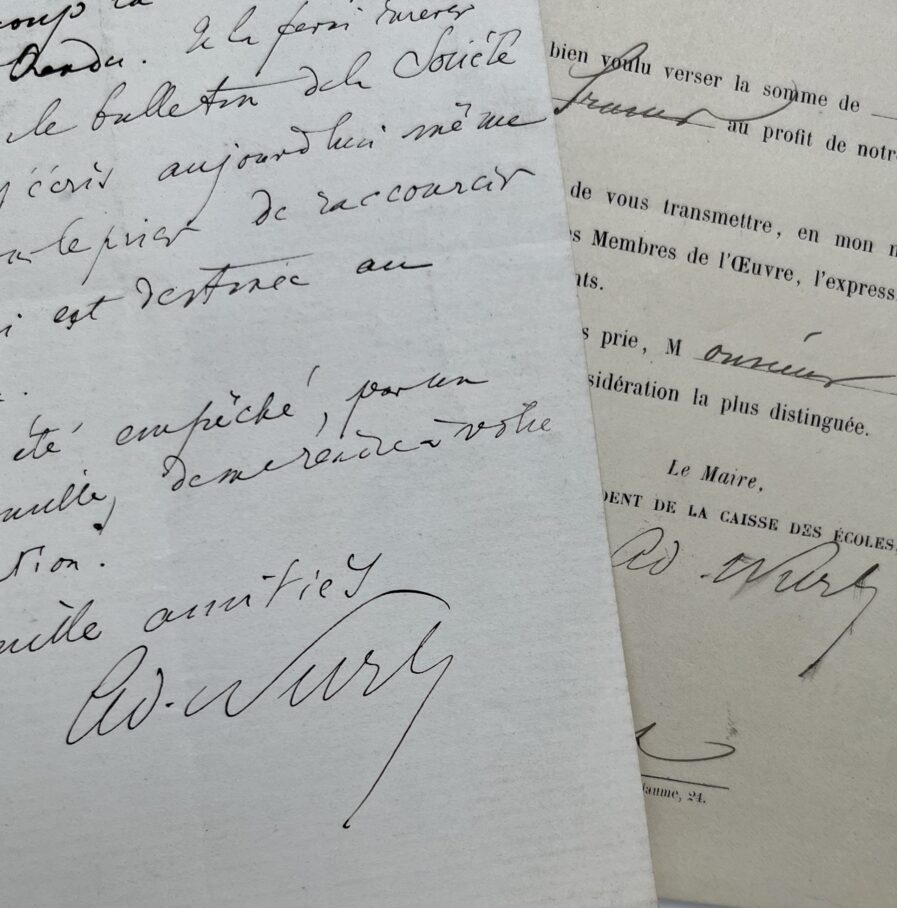 Rendu. Je la ferai insérer
le bulletin de la Société
j'écris aujourd'hui même
le prier de raccourcir
est destinée au
été empêché, par un
de me rendre à votre
tion.
mille amitiés
Ad. Wurtz
bien voulu verser la somme de
francs au profit de notr
de vous transmettre, en mon n
s Membres de l'Œuvre, l'express
nts.
s prie, Monsieur
sidération la plus distinguée.
Le Maire,
DENT DE LA CAISSE DES ÉCOLES,
Ad. Wurtz
laume, 24.